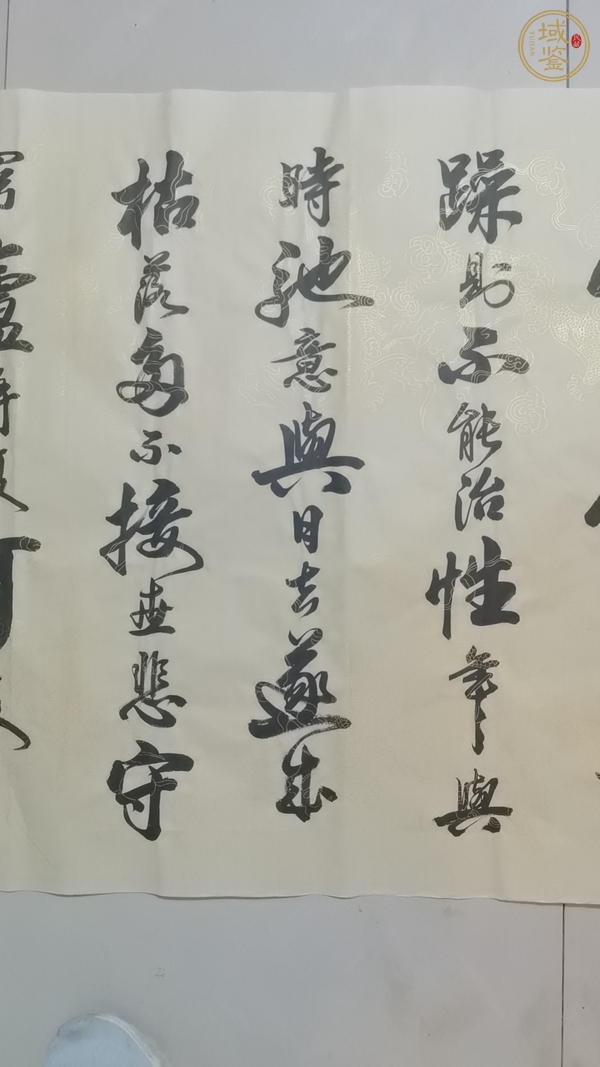 域鉴
躁則不能治性年與
時馳意與日去遂成
枯落多不接世悲守
窮廬將復何及